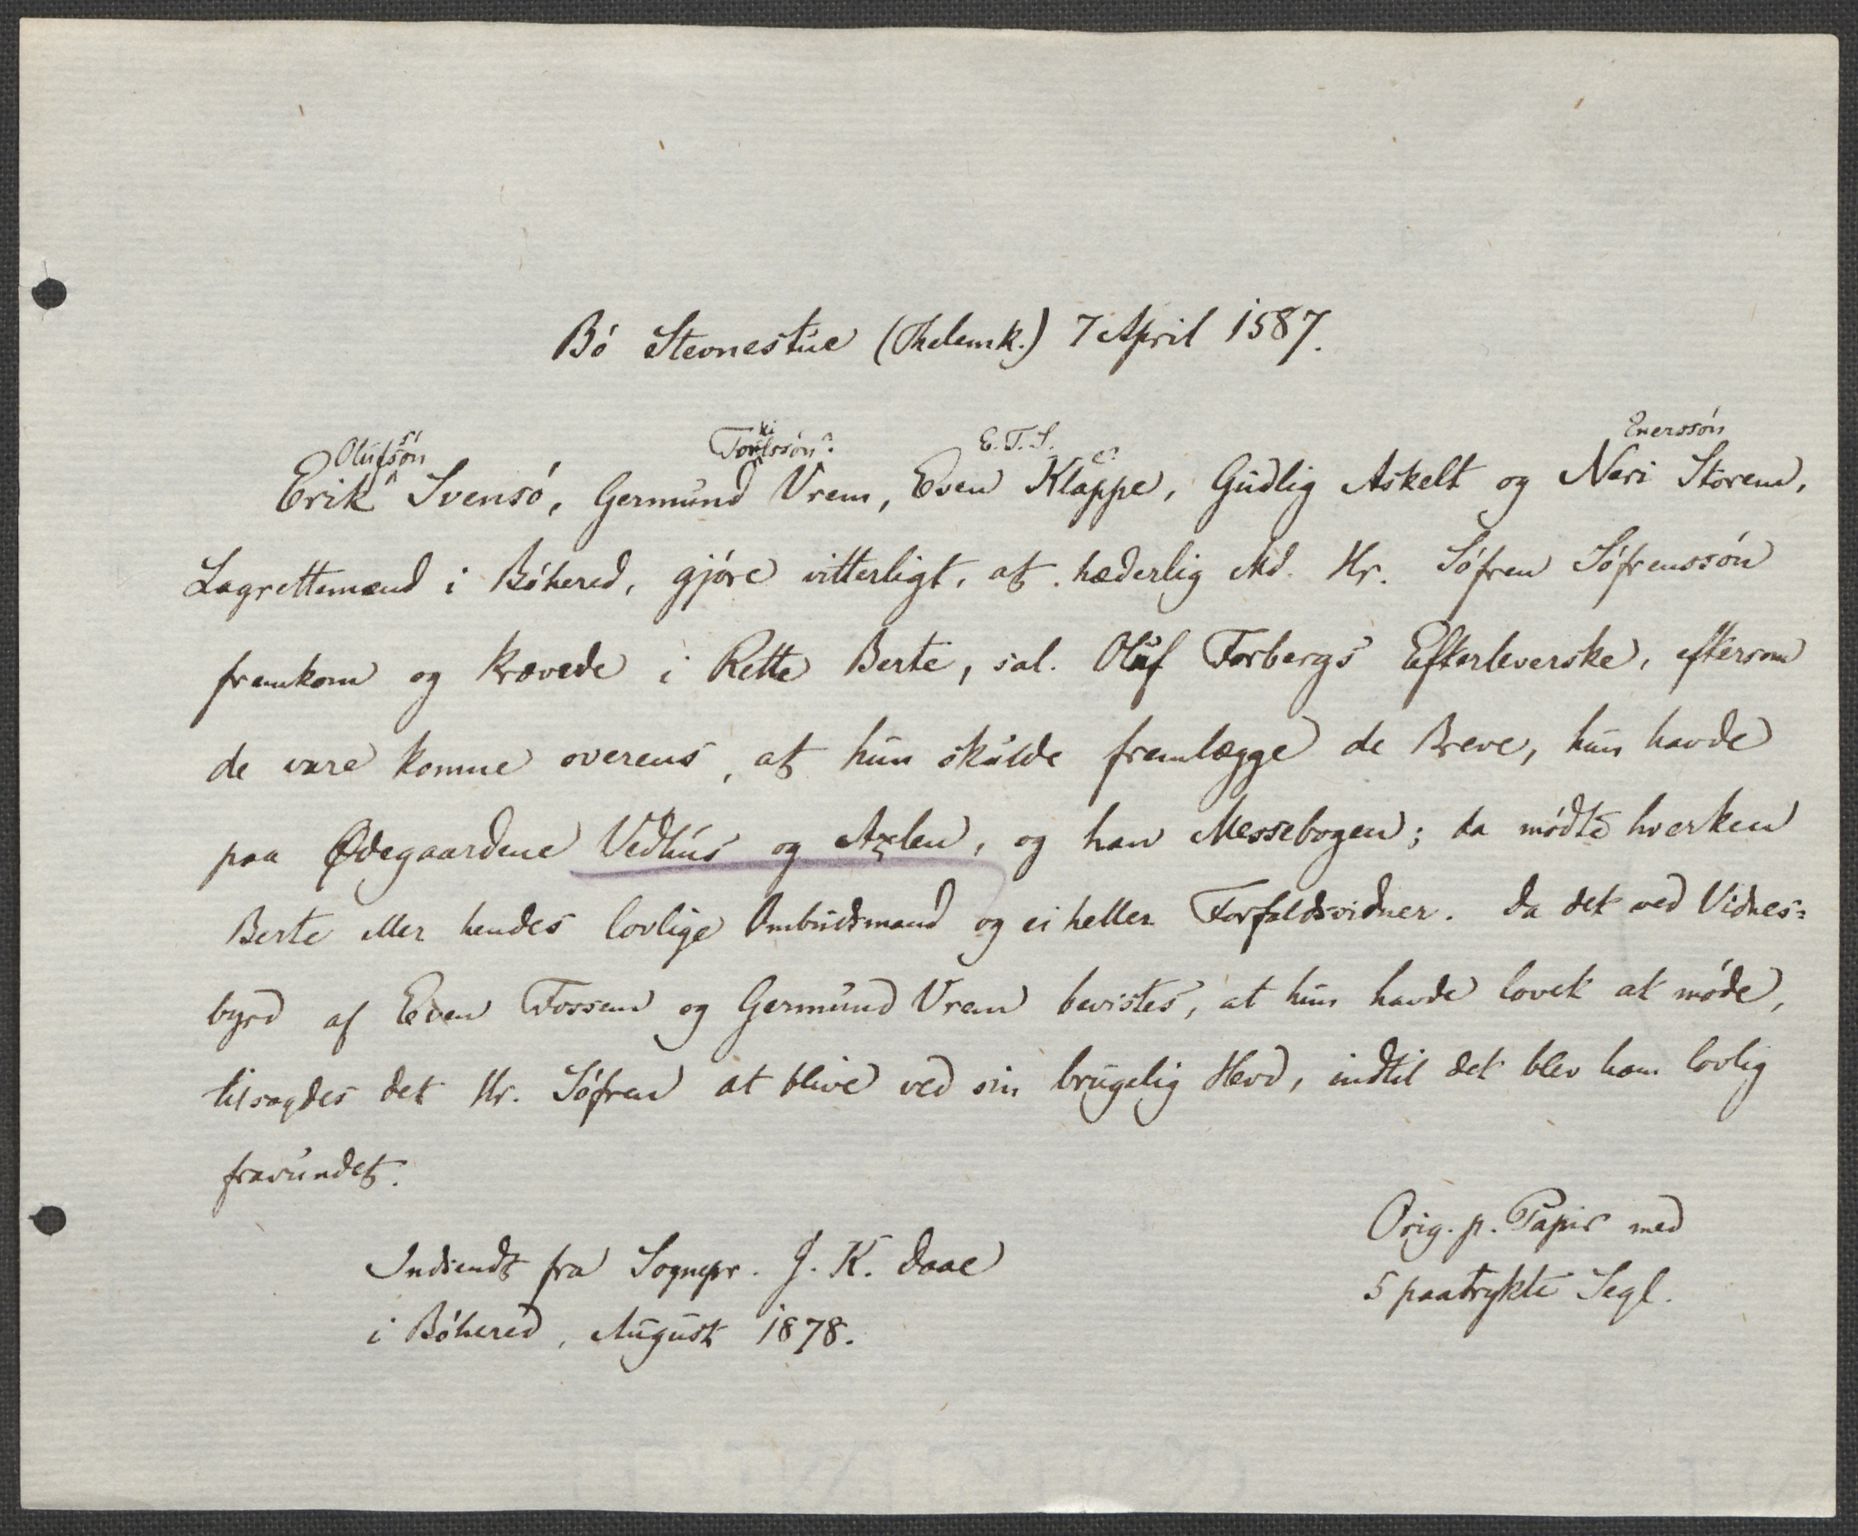 Bó Stevnestue (Thelemk.) 7 April 1587.
Olufsón Enerssón
E. T. S. e?
Erik Svensó, Germund Vrem, Even Klappe, Gudlig Askelt og Neri Storem,
Lagrettemænd i Bóhered, gjóre vitterligt, at hæderlig Md. Hr. Sófren Sófrenssón
fremkom og krævede i Rette Berte, sal. Oluf Forbergs Efterleverske, eftersom
de vare komne overens, at hun skulde fremlægge de Breve, hun havde
paa Ødegaardene Vedhus og Axlen, og han Messebogen; da módte hverken
Berte eller hendes lovlige Ombudsmand og ei heller Forfaldsvidner. Da det ved Vidnes=
byrd af Even Fossem og Germund Vrem bevistes, at hun havde lovet at móde,
tilsagdes det Hr. Sófren at blive ved sin brugelig Hevd, indtil det blev ham lovlig
fravundet.
Orig. p. Papir med
5 paatrykte Segl.
Indsendt fra Sognepr. J. K. Daae
i Bóhered, August 1878.